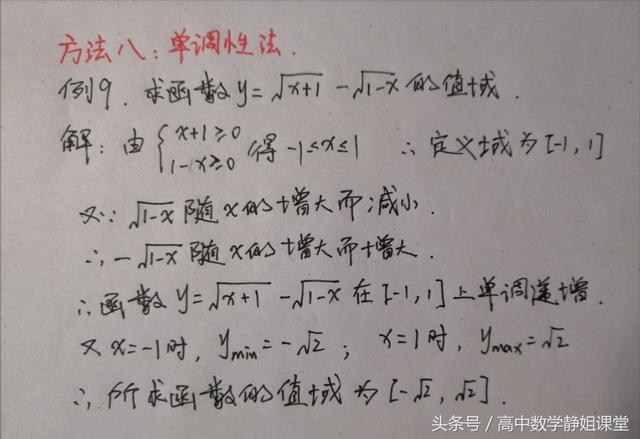 方法八：单调性法.
例9. 求函数y=√(x+1) -√(1-x) 的值域.
解：由{x+1≥0 1-x≥0 得 -1≤x≤1 ∴定义域为[-1,1]
又∵√(1-x) 随x的增大而减小.
∴-√(1-x) 随x的增大而增大.
∴函数y=√(x+1) -√(1-x) 在[-1,1]上单调递增.
又x=-1时, y_min=-√2; x=1时, y_max=√2
∴所求函数的值域为[-√2, √2].
头条号／高中数学静姐课堂